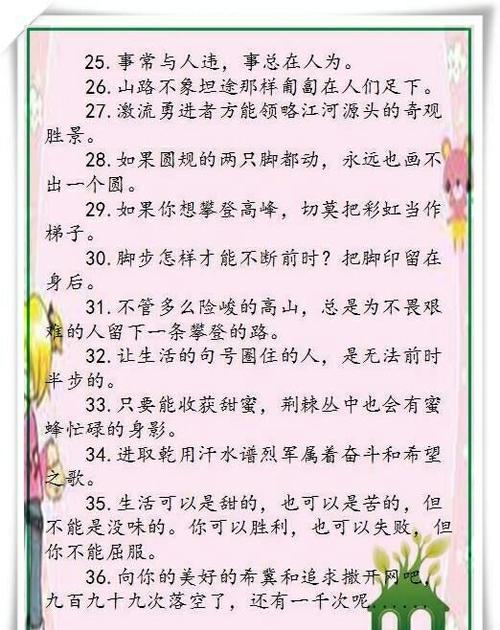 25.事常与人违，事总在人为。
26.山路不象坦途那样匍匐在人们足下。
27.激流勇进者方能领略江河源头的奇观
胜景。
28.如果圆规的两只脚都动，永远也画不
出一个圆。
29.如果你想攀登高峰，切莫把彩虹当作
梯子。
30.脚步怎样才能不断前时？把脚印留在
身后。
31.不管多么险峻的高山，总是为不畏艰
难的人留下一条攀登的路。
32.让生活的句号圈住的人，是无法前时
半步的。
33.只要能收获甜蜜，荆棘丛中也会有蜜
蜂忙碌的身影。
34.进取乾用汗水谱烈军属着奋斗和希望
之歌。
35.生活可以是甜的，也可以是苦的，但
不能是没味的。你可以胜利，也可以失败，但
你不能屈服。
36.向你的美好的希冀和追求撒开网吧，
九百九十九次落空了，还有一千次呢......